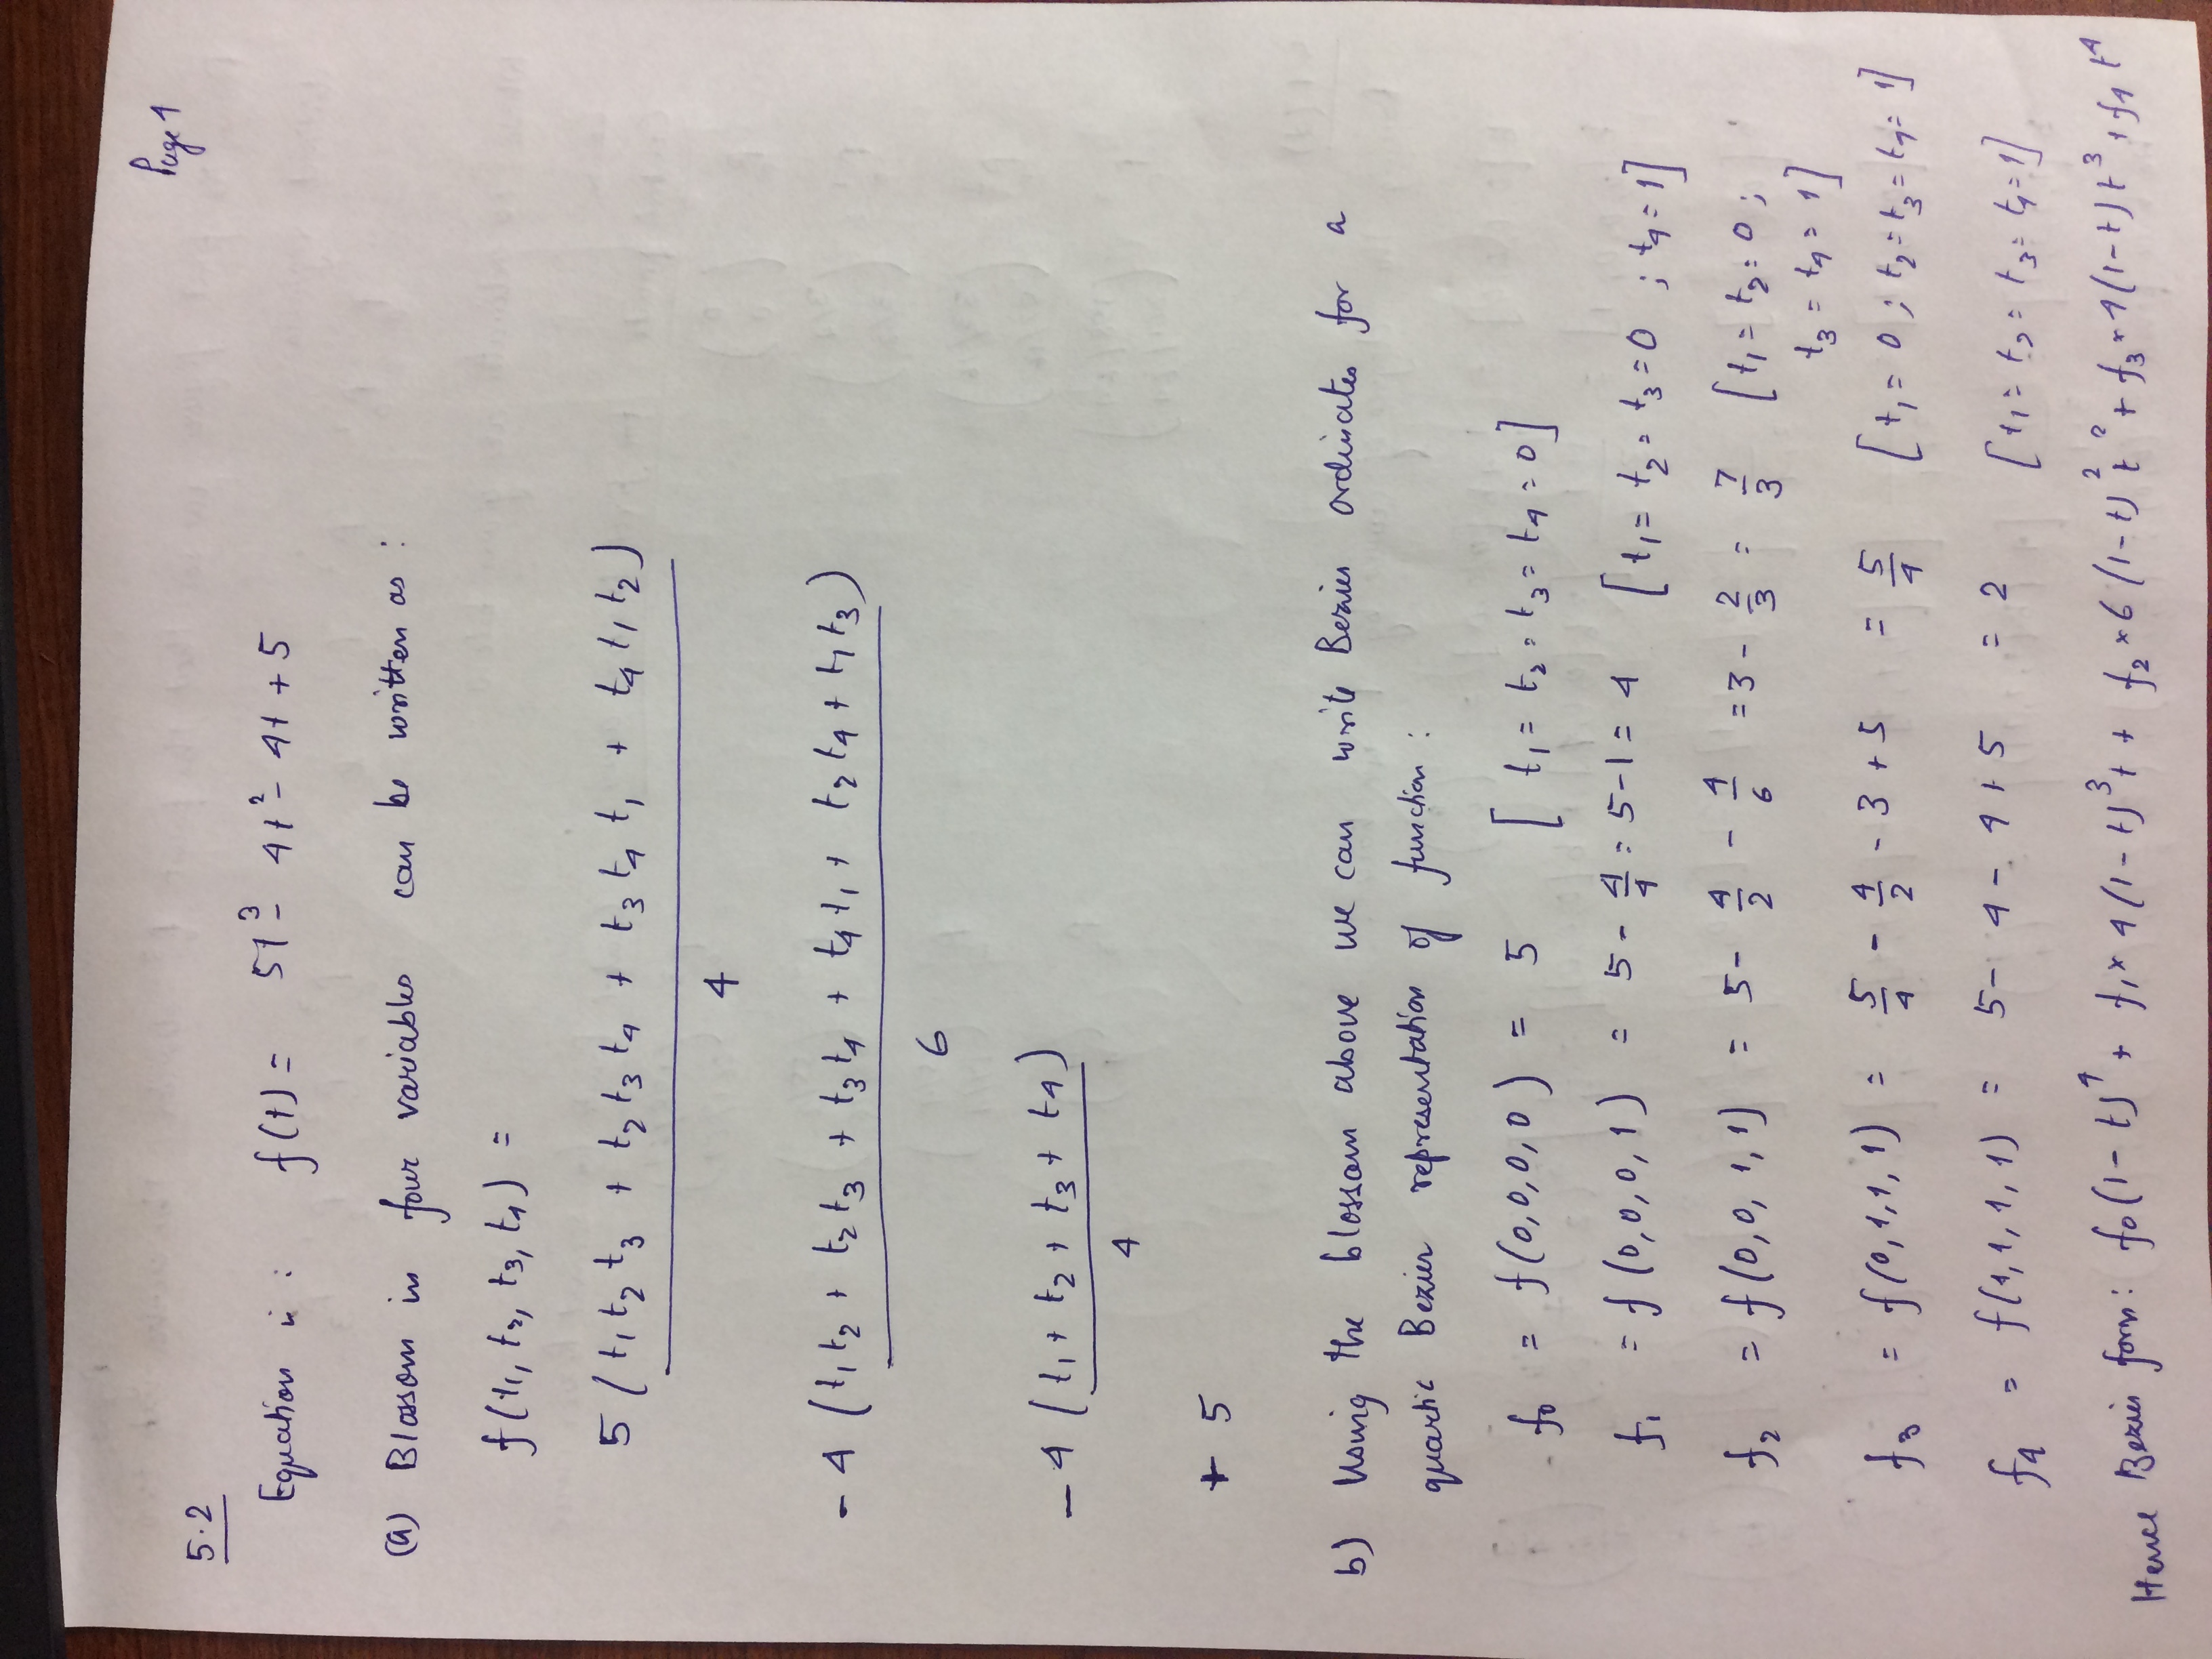 Page 1
5.2
Equation is : f(t) = 5t³ - 4t² - 4t + 5
(a) Blossom in four variables can be written as :
f(t₁, t₂, t₃, t₄) =
5 (t₁t₂t₃ + t₂t₃t₄ + t₃t₄t₁ + t₄t₁t₂)
4
- 4 (t₁t₂ + t₂t₃ + t₃t₄ + t₄t₁ + t₂t₄ + t₁t₃)
6
- 4 (t₁ + t₂ + t₃ + t₄)
4
+ 5
b) Using the blossom above we can write Bezier ordinates for a
quartic Bezier representation of function :
f₀ = f(0,0,0,0) = 5 [t₁ = t₂ = t₃ = t₄ = 0]
f₁ = f(0,0,0,1) = 5 - 4/4 = 5-1 = 4 [t₁ = t₂ = t₃ = 0 ; t₄ = 1]
f₂ = f(0,0,1,1) = 5 - 4/2 - 4/6 = 3 - 2/3 = 7/3 [t₁ = t₂ = 0 ;
t₃ = t₄ = 1]
f₃ = f(0,1,1,1) = 5/4 - 4/2 - 3 + 5 = 5/4 [t₁ = 0 ; t₂ = t₃ = t₄ = 1]
f₄ = f(1,1,1,1) = 5 - 4 - 4 + 5 = 2 [t₁ = t₂ = t₃ = t₄ = 1]
Hence Bezier form: f₀(1-t)⁴ + f₁×4(1-t)³t + f₂×6(1-t)²t² + f₃×4(1-t)t³ + f₄t⁴